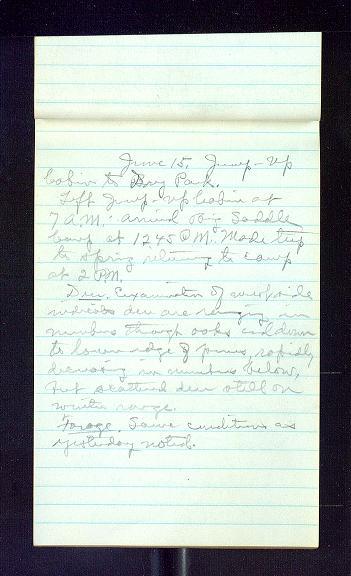 June 15, Jump-Up
Cabin to Dry Park.
Left Jump-Up Cabin at
7 A.M. arrived Big Saddle
Camp at 1245 P.M. Made trip
to spring returning to camp
at 2 P.M.
Deer. Examination of west side
indicates deer are ranging in
numbers through oaks and down
to lower edge of pines, rapidly
decreasing in numbers below,
but scattered deer still on
winter range.
Forage. Same conditions as
yesterday noted.